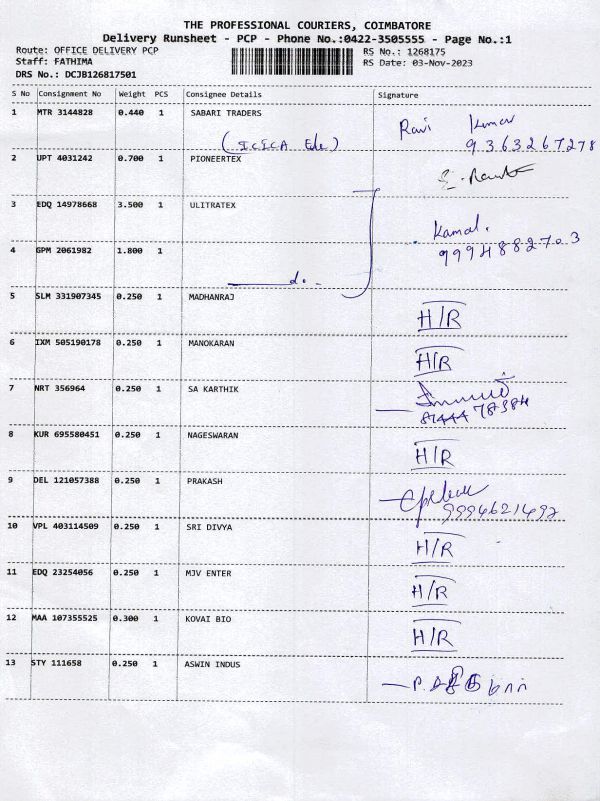 THE PROFESSIONAL COURIERS, COIMBATORE
Delivery Runsheet - PCP - Phone No.:0422-3505555 - Page No.:1
Route: OFFICE DELIVERY PCP RS No.: 1268175
Staff: FATHIMA RS Date: 03-Nov-2023
DRS No.: DCJB126817501
S No Consignment No Weight PCS Consignee Details Signature
1 MTR 3144828 0.440 1 SABARI TRADERS Ravi Kumar
9363267278
2 UPT 4031242 0.700 1 PIONEERTEX
3 EDQ 14978668 3.500 1 ULITRATEX Kamal.
4 GPM 2061982 1.800 1 9994882703
do.
5 SLM 331907345 0.250 1 MADHANRAJ H/R
6 IXM 505190178 0.250 1 MANOKARAN H/R
7 NRT 356964 0.250 1 SA KARTHIK
8 KUR 695580451 0.250 1 NAGESWARAN H/R
9 DEL 121057388 0.250 1 PRAKASH
9994621492
10 VPL 403114509 0.250 1 SRI DIVYA H/R
11 EDQ 23254056 0.250 1 MJV ENTER H/R
12 MAA 107355525 0.300 1 KOVAI BIO H/R
13 STY 111658 0.250 1 ASWIN INDUS